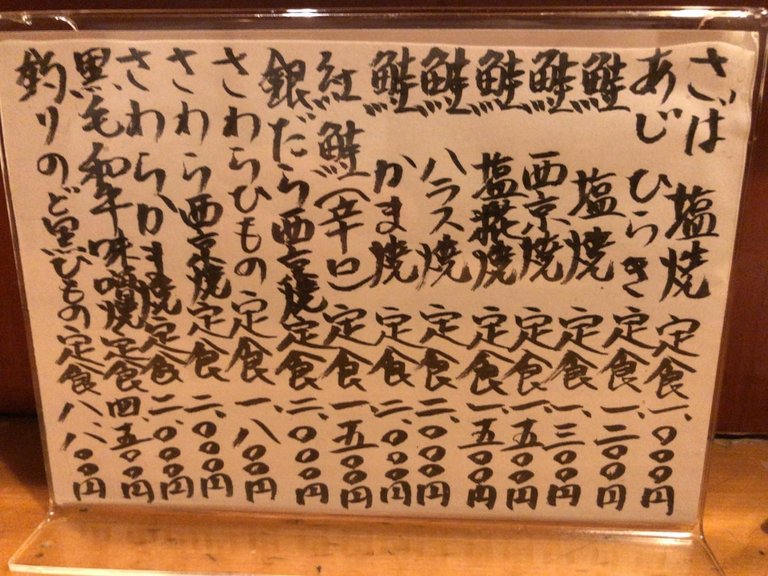 さば 塩焼 定食 一、〇〇〇円
あじ ひらき 定食 一、二〇〇円
鮭 塩焼 定食 一、三〇〇円
鮭 西京焼 定食 一、五〇〇円
鮭 塩糀焼 定食 一、五〇〇円
鮭 ハラス焼 定食 二、〇〇〇円
鮭 かま焼 定食 二、〇〇〇円
紅鮭(辛口) 定食 一、五〇〇円
銀だら西京焼 定食 二、〇〇〇円
さわらひもの 定食 一、八〇〇円
さわら西京焼 定食 二、〇〇〇円
さわらかま焼 定食 二、〇〇〇円
黒毛和牛味噌焼 定食 四、五〇〇円
釣りのど黒ひもの 定食 八、八〇〇円